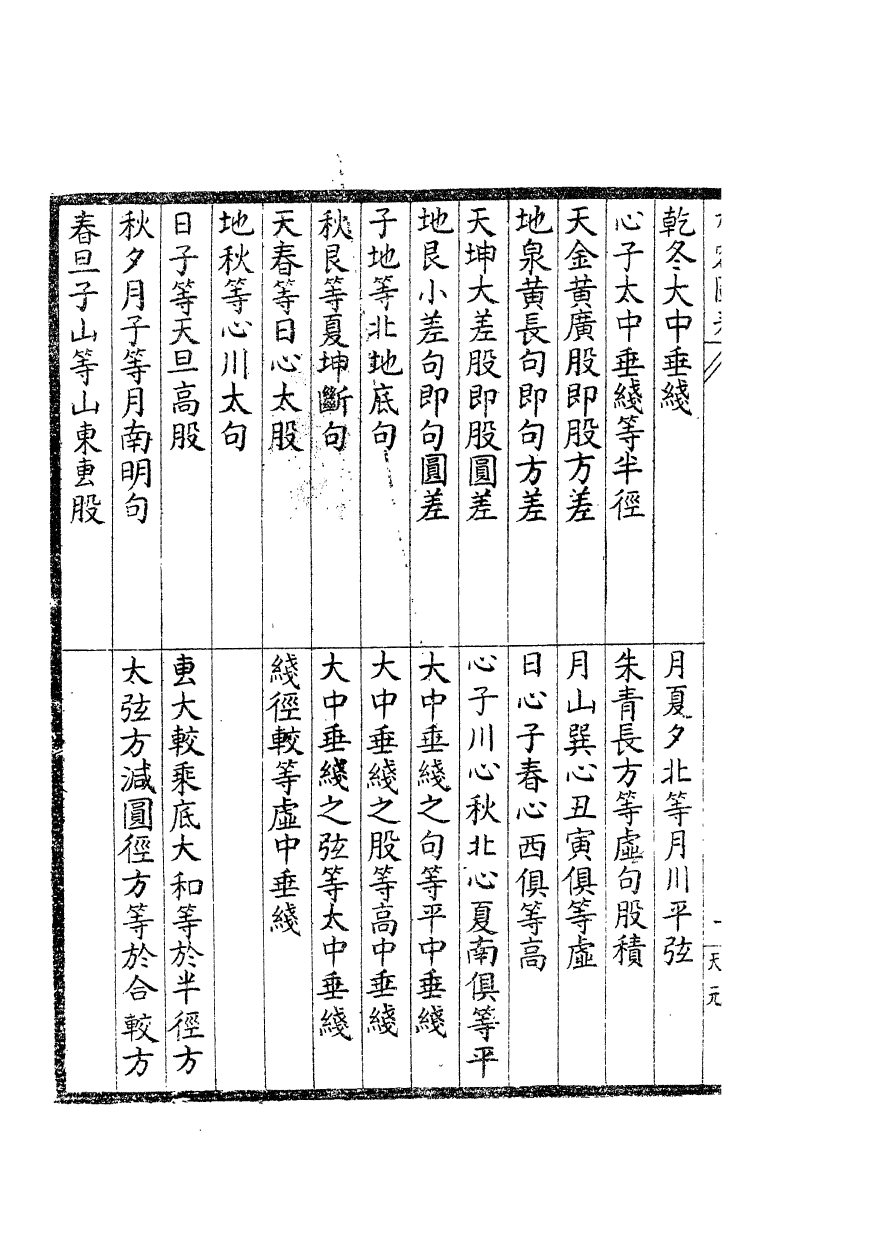 乾冬大中垂綫
心子太中垂綫等半徑
天金黃廣股即股方差
地泉黃長句即句方差
天坤大差股即股圓差
地艮小差句即句圓差
子地等北地底句
秋艮等夏坤斷句
天春等日心太股
地秋等心川太句
日子等天旦高股
秋夕月子等月南明句
春旦子山等山東叀股
月夏夕北等月川平弦
朱青長方等虛句股積
月山巽心丑寅俱等虛
日心子春心西俱等高
心子川心秋北心夏南俱等平
大中垂綫之句等平中垂綫
大中垂綫之股等高中垂綫
大中垂綫之弦等太中垂綫
綫徑較等虛中垂綫
叀大較乘底大和等於半徑方
太弦方減圓徑方等於合較方
一
天元